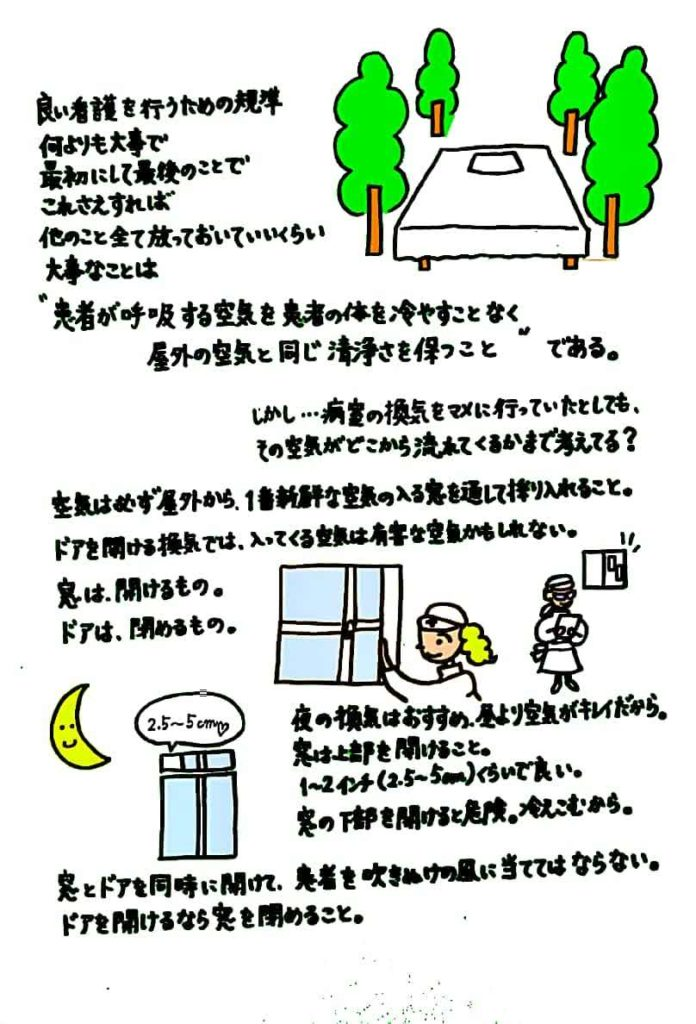 良い看護を行うための規準
何よりも大事で
最初にして最後のことで
これさえすれば
他のこと全て放っておいていいくらい
大事なことは
"患者が呼吸する空気を患者の体を冷やすことなく
屋外の空気と同じ清浄さを保つこと"である。
しかし…病室の換気をマメに行っていたとしても、
その空気がどこから流れてくるかまで考えてる？
空気は必ず屋外から、1番新鮮な空気の入る窓を通して採り入れること。
ドアを開ける換気では、入ってくる空気は有害な空気かもしれない。
窓は、開けるもの。
ドアは、閉めるもの。
2.5～5cm♡
夜の換気はおすすめ、昼より空気がキレイだから。
窓は上部を開けること。
1～2インチ(2.5～5cm)くらいで良い。
窓の下部を開けると危険。冷えこむから。
窓とドアを同時に開けて、患者を吹きぬけの風に当ててはならない。
ドアを開けるなら窓を閉めること。